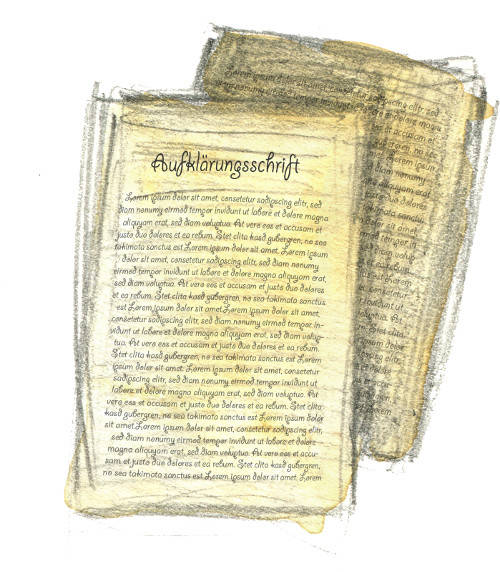 Aufklärungsschrift
Lorem ipsum dolor sit amet, consetetur sadipscing elitr, sed
diam nonumy eirmod tempor invidunt ut labore et dolore magna
aliquyam erat, sed diam voluptua. At vero eos et accusam et
justo duo dolores et ea rebum. Stet clita kasd gubergren, no sea
takimata sanctus est Lorem ipsum dolor sit amet. Lorem ipsum
dolor sit amet, consetetur sadipscing elitr, sed diam nonumy
eirmod tempor invidunt ut labore et dolore magna aliquyam erat,
sed diam voluptua. At vero eos et accusam et justo duo dolores
et ea rebum. Stet clita kasd gubergren, no sea takimata sanctus
est Lorem ipsum dolor sit amet. Lorem ipsum dolor sit amet,
consetetur sadipscing elitr, sed diam nonumy eirmod tempor in-
vidunt ut labore et dolore magna aliquyam erat, sed diam volup-
tua. At vero eos et accusam et justo duo dolores et ea rebum.
Stet clita kasd gubergren, no sea takimata sanctus est Lorem
ipsum dolor sit amet. Lorem ipsum dolor sit amet, consetetur
sadipscing elitr, sed diam nonumy eirmod tempor invidunt ut
labore et dolore magna aliquyam erat, sed diam voluptua. At
vero eos et accusam et justo duo dolores et ea rebum. Stet clita
kasd gubergren, no sea takimata sanctus est Lorem ipsum dolor
sit amet. Lorem ipsum dolor sit amet, consetetur sadipscing elitr,
sed diam nonumy eirmod tempor invidunt ut labore et dolore
magna aliquyam erat, sed diam voluptua. At vero eos et accu-
sam et justo duo dolores et ea rebum. Stet clita kasd gubergren,
no sea takimata sanctus est Lorem ipsum dolor sit amet. Lorem
Lorem ipsum dolor sit amet, consetetur sadipscing elitr, sed
diam nonumy eirmod tempor invidunt ut labore et dolore magna